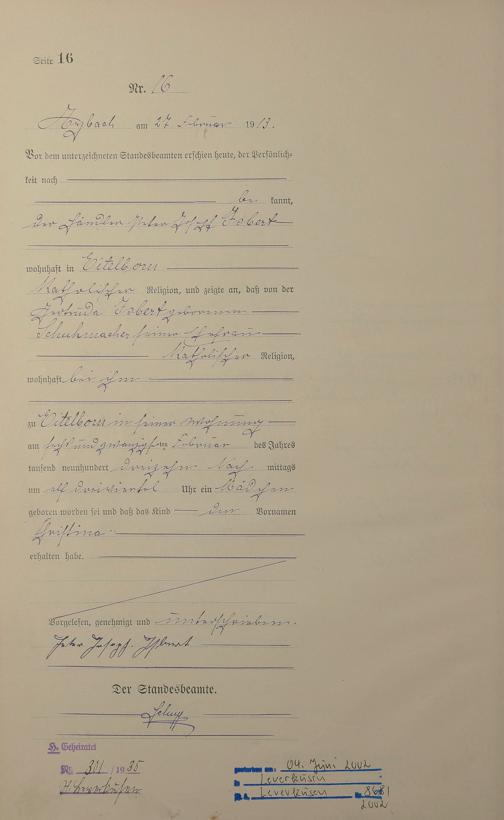 Seite 16
Nr. 16
Arzbach am 27 Februar 1913.
Vor dem unterzeichneten Standesbeamten erschien heute, der Persönlich-
keit nach
be kannt,
der Händler Peter Josef Isbert
wohnhaft in Eitelborn
Katholischer Religion, und zeigte an, daß von der
Gertruda Isbert geborenen
Schuhmacher seiner Ehefrau
Katholischer Religion,
wohnhaft bei ihm
zu Eitelborn in seiner Wohnung
am sechs und zwanzigsten Februar des Jahres
tausend neunhundert dreizehn Nach mittags
um elf dreiviertel Uhr ein Mädchen
geboren worden sei und daß das Kind den Vornamen
Christina
erhalten habe.
Vorgelesen, genehmigt und unterschrieben.
Peter Josef Isbert
Der Standesbeamte.
Geheiratet
Nr. /1935
gestorben am: 04. Juni 2002
in Leverkusen
St. A. Leverkusen Nr. 868/
2002